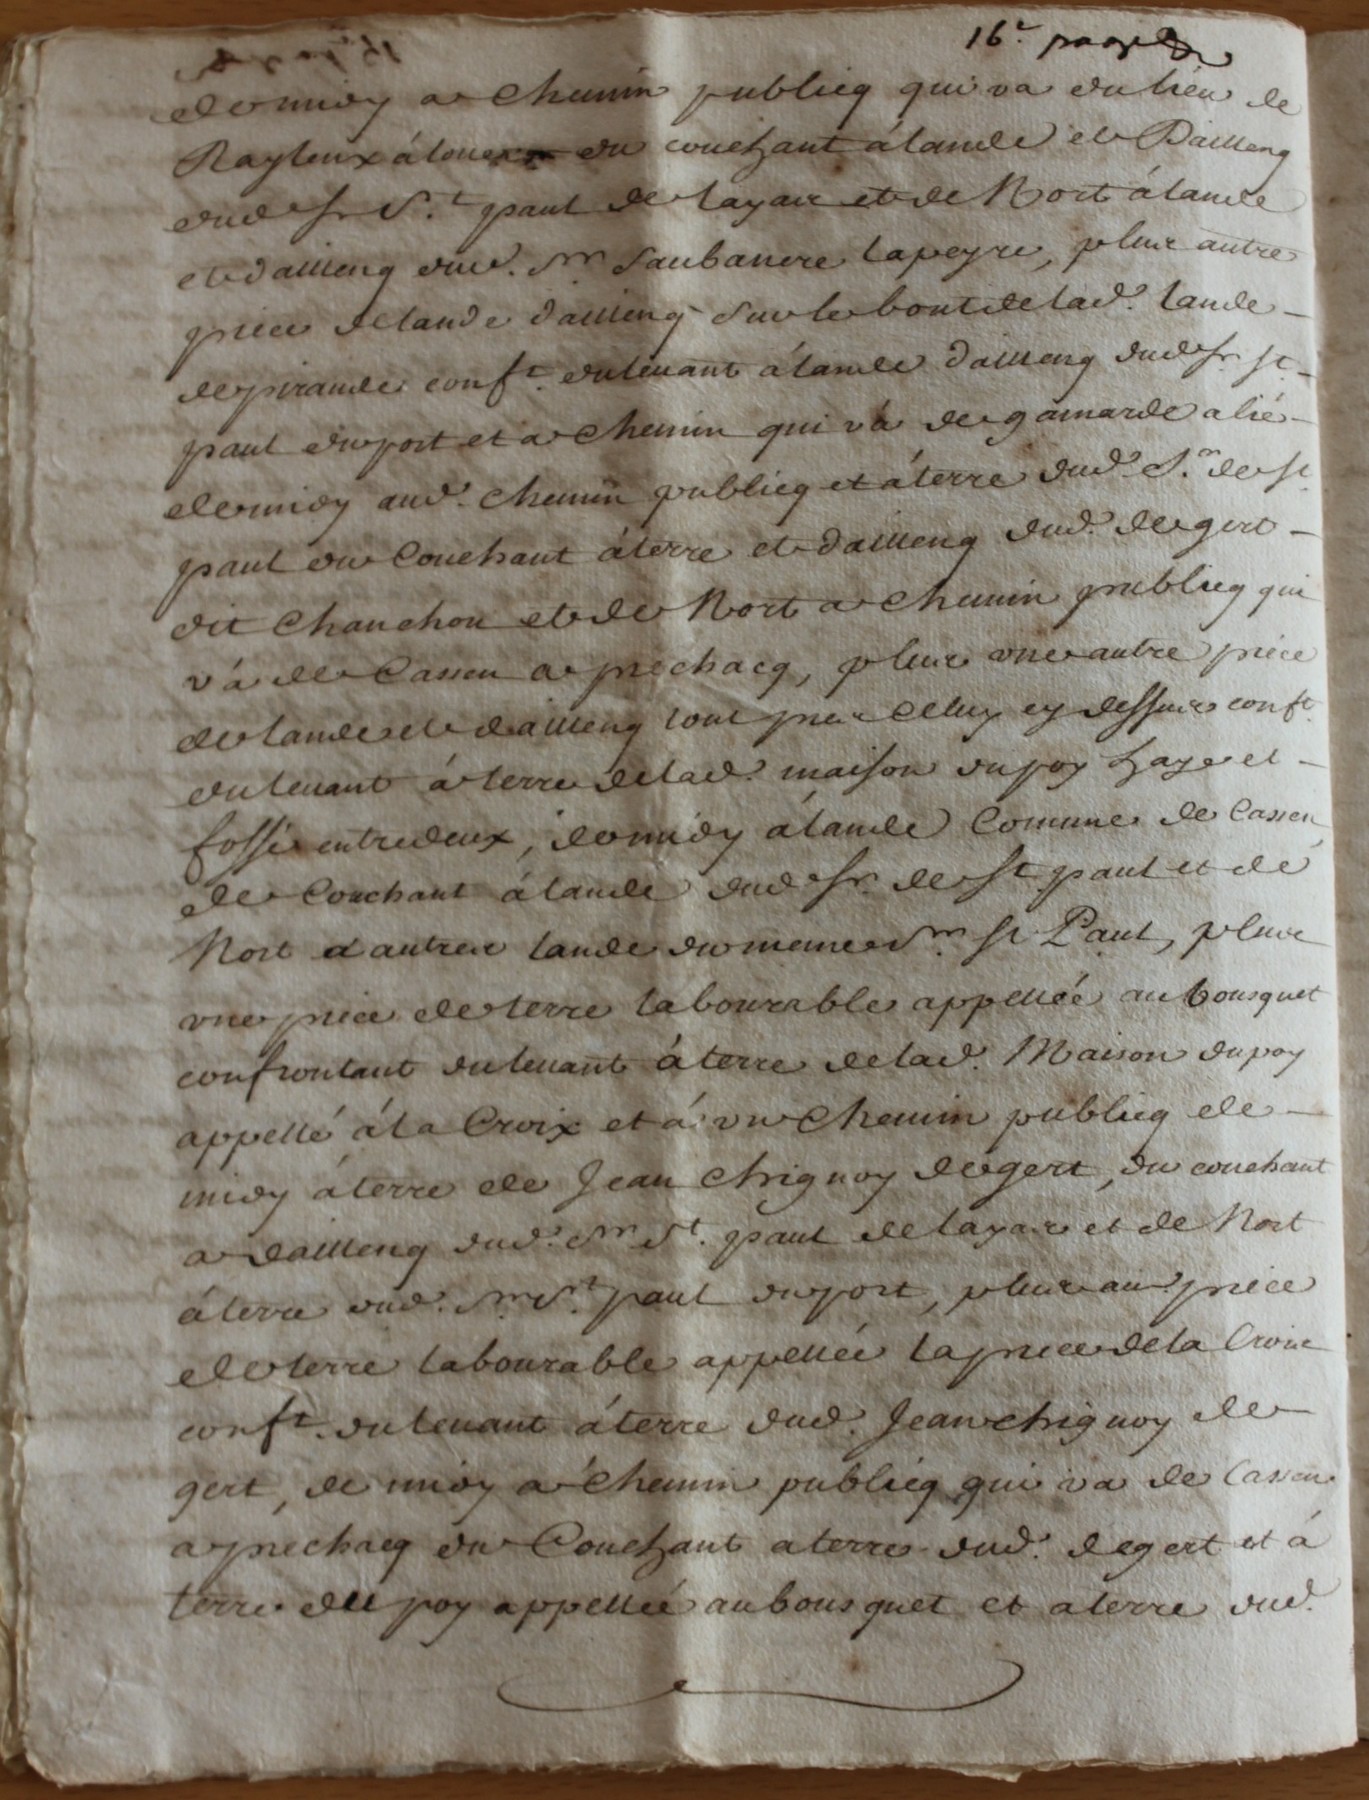 16e page
de midy a chemin publicq qui va du lieu de
du couchant á lande et Dailleng
dud sr St paul de layar et de Nort á lande
et dailleng dud. Sr Saubanere lapeyre, plus autre
piece de lande dailleng sur le bout de lad. lande
de pirande conft. du levant á lande dailleng dud sr St
paul du port et a chemin qui vá de gamarde a
de midy aud. chemin publicq et á terre dud. Sr de St
paul du Couchant á terre et dailleng dud. degert
dit Chanchon et de Nort a chemin publicq qui
vá de Cassen a prechacq, plus une autre piece
de lande et dailleng tout pres celuy cy dessus conft.
du levant á terre de lad. maison du poy haye et
fossé entredeux, de midy á lande Comune de Cassen,
de Couchant á lande dud sr. de St paul et de
Nort a autre lande du meme Sr St Paul, plus
une piece de terre labourable appellée au bousquet
confrontant du levant á terre de lad. Maison du poy
appellé á la Croix et á un chemin publicq de
midy á terre de Jean Chignoy degert, du couchant
a dailleng dud. Sr St. paul de layar et de Nort
á terre dud. Sr St. paul du port, plus au. piece
de terre labourable appellée la piece de la Croix
conft. du levant á terre dud. Jean chignoy de
gert, de midy a chemin publicq qui va de Cassen
a prechacq du Couchant a terre dud. degert et á
terre du poy appellée au bousquet et a terre dud.